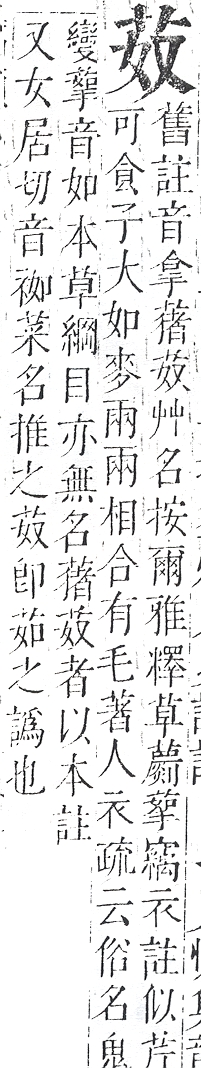 舊註音拿藸艸名按爾雅釋草蘮蒘竊衣註似芹
可食子大如麥兩兩相合有毛著人衣疏云俗名鬼
變蒘音如本草綱目亦無名藸者以本註
又女居切音袽菜名推之即茹之譌也